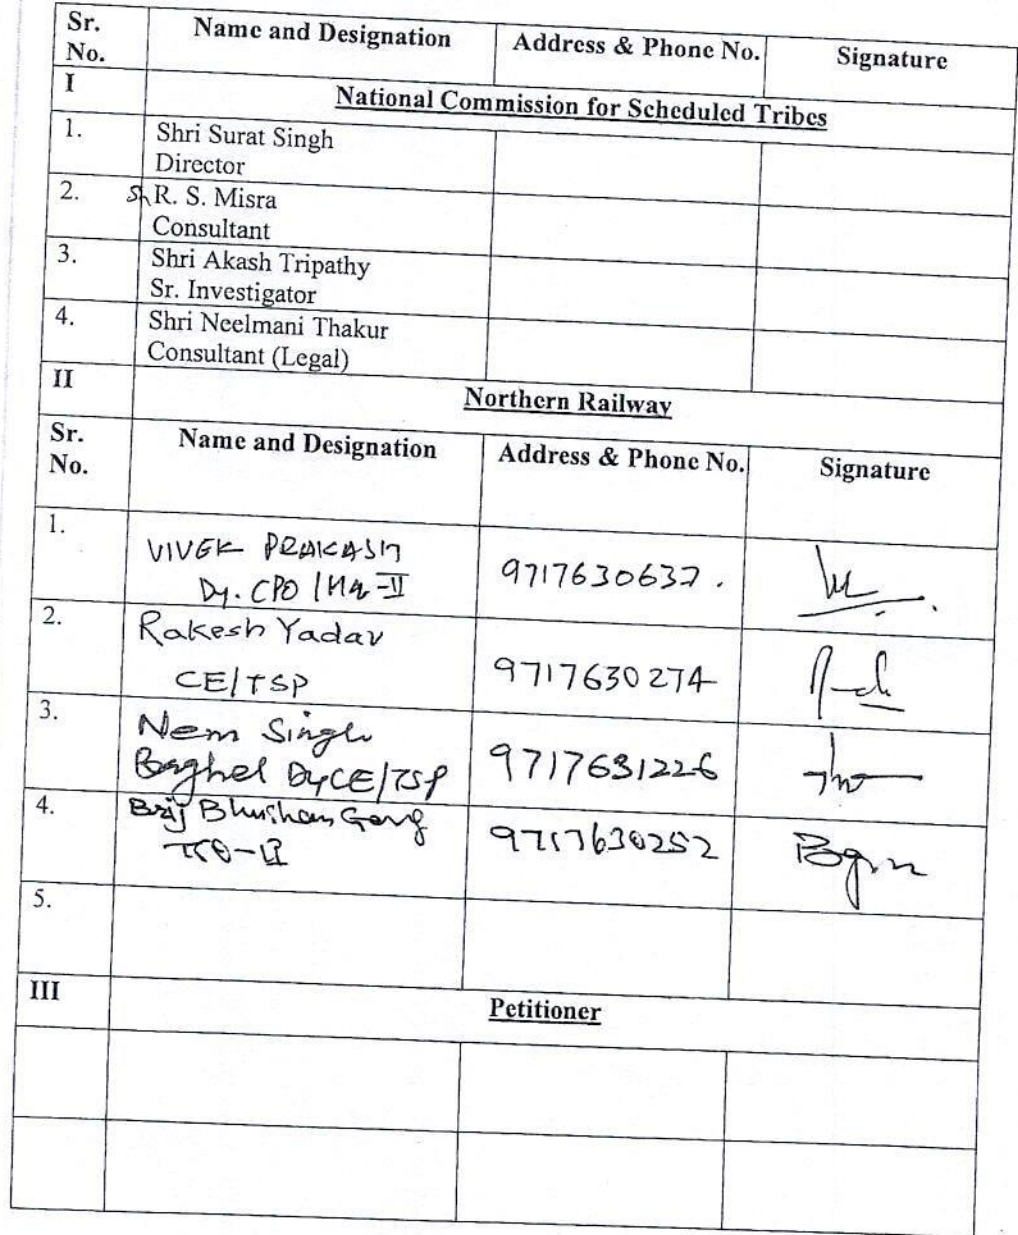 Sr. No. Name and Designation Address & Phone No. Signature
I National Commission for Scheduled Tribes
1. Shri Surat Singh
Director
2. Sh R. S. Misra
Consultant
3. Shri Akash Tripathy
Sr. Investigator
4. Shri Neelmani Thakur
Consultant (Legal)
II Northern Railway
Sr. No. Name and Designation Address & Phone No. Signature
1. VIVEK PRAKASH 9717630637.
Dy. CPO /HQ-II
2. Rakesh Yadav
CE/TSP 9717630274
3. Nem Singh
Baghel DyCE/TSP 9717631226
4. Brij Bhushan Garg 9717630252
5.
III Petitioner